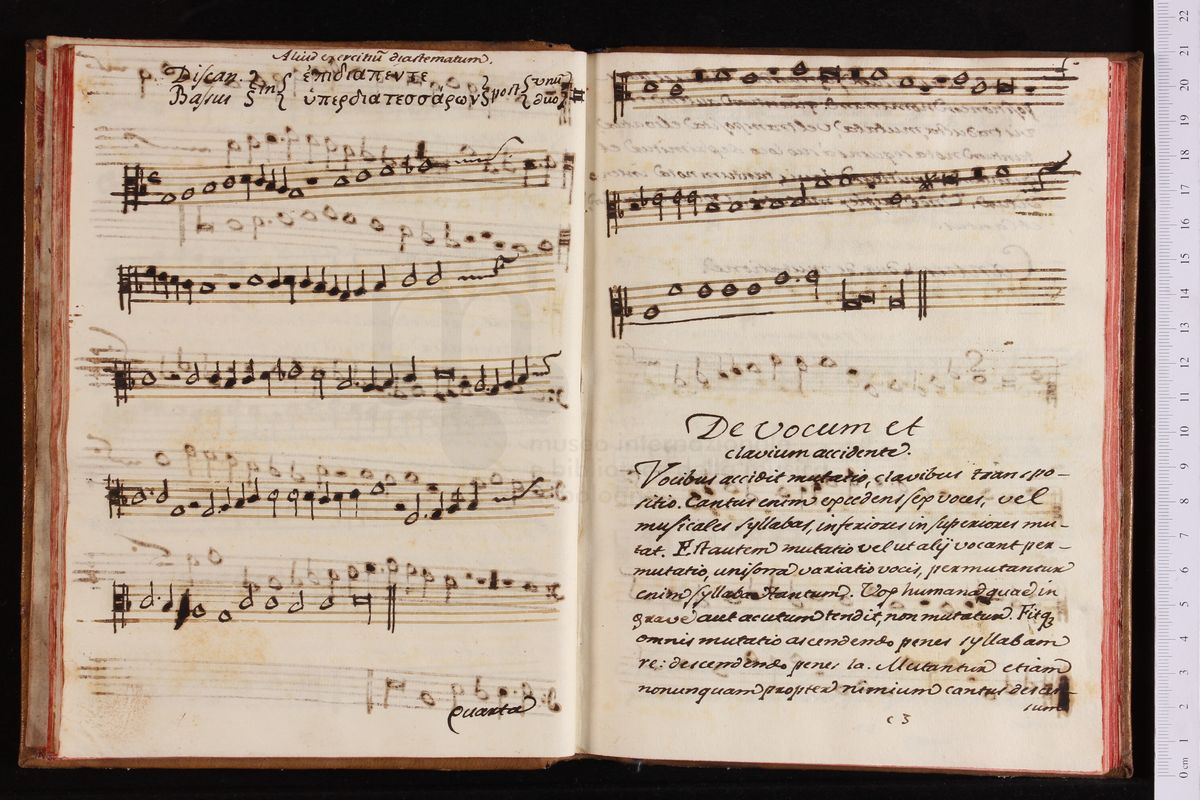 Aliud exercitiũ diastematum.
Discan. in ἐπιδιαπέντε post unũ
Basus ὑπερδιατεσσάρων duo
Quarta
De vocum et
clavium accidente.
Vocibus accidit mutatio, clavibus transpo-
sitio. Cantus enim excedens sex voces, vel
musicales syllabas, inferiores in superiores mu-
tat. Est autem mutatio vel ut alij vocant per-
mutatio, unisona variatio vocis, permutantur
enim syllabae tantum. Vox humana quae in
grave aut acutum tendit, non mutatur. Fitq
omnis mutatio ascendendo penes syllabam
re: descendendo penes la. Mutantur etiam
nonunquam propter nimium cantus descen-
sum
c 3
museo internazionale